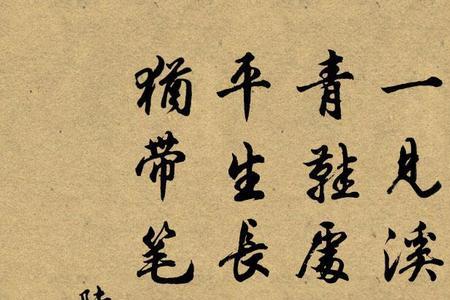 一見溪
青鞋處
平生長
猶带笔